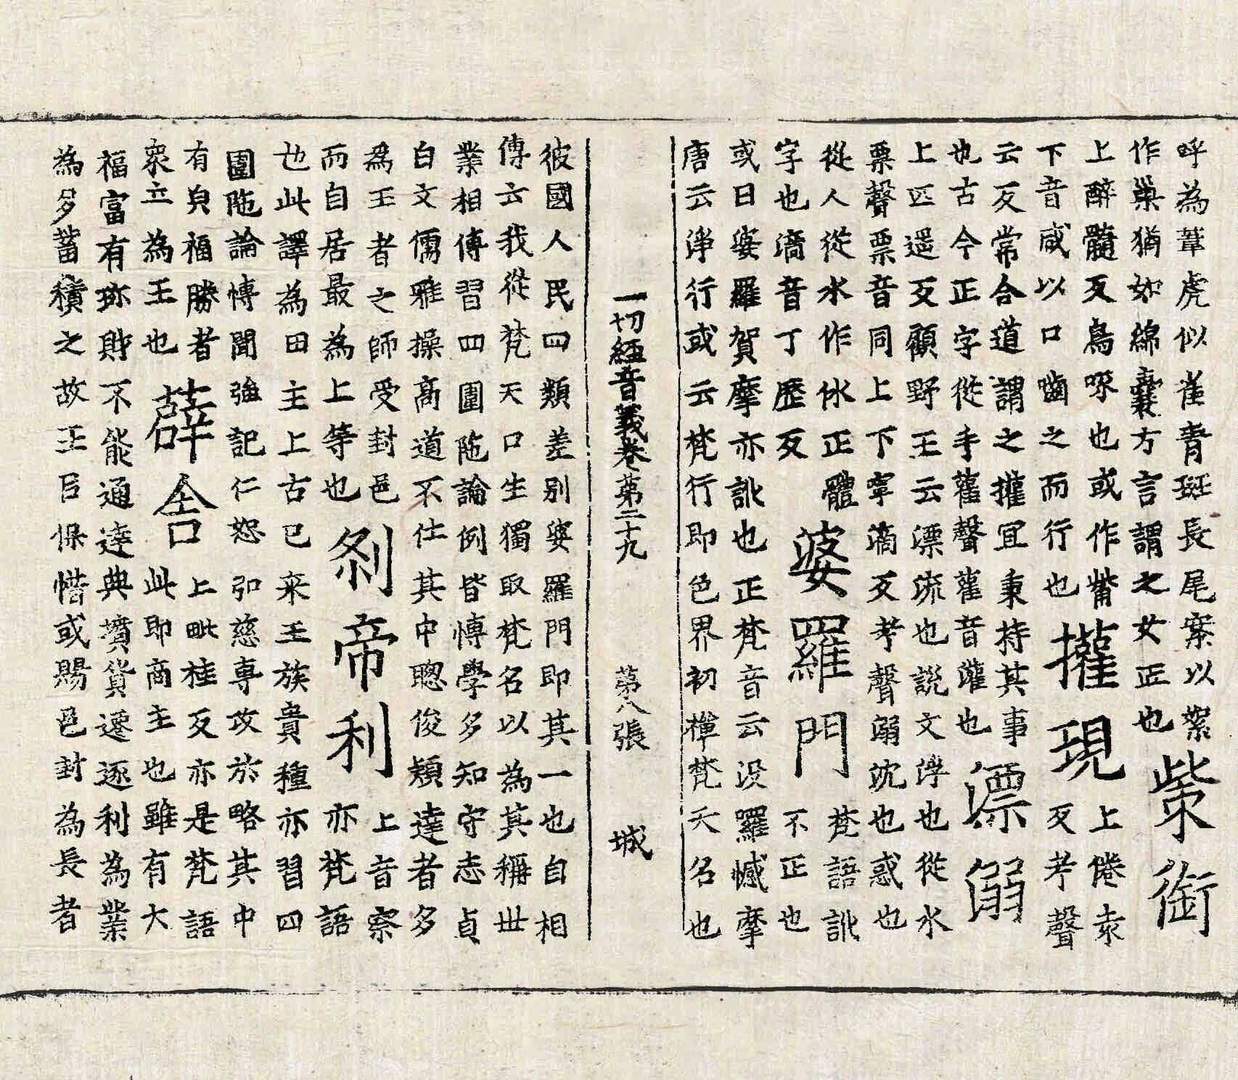 呼為葦虎似雀青斑長尾窠以絮
作巢猶如綿囊方言謂之女正也觜銜
上醉髓反鳥喙也或作觜
下音咸以口嚙之而行也攉現上倦袁反考聲
云反常合道謂之攉宜秉持其事
也古今正字從手雚聲雚音灌也漂溺
上匹遥反顧野王云漂流也說文浮也從水
票聲票音同上下寧滴反考聲溺沈也惑也
從人從水作㲻正體
字也滴音丁歷反婆羅門梵語訛不正也
或曰婆羅賀摩亦訛也正梵音云没羅憾摩
唐云淨行或云梵行即色界初禪梵天名也
一切經音義卷第二十九 第八張 城
彼國人民四類差別婆羅門即其一也自相
傳云我從梵天口生獨取梵名以為其稱世
業相傳習四圍陁論例皆博學多知守志貞
白文儒雅操髙道不仕其中聰俊穎達者多
為王者之師受封邑刹帝利上音察亦梵語
而自居最為上等也
也此譯為田主上古已来王族貴種亦習四
圍陁論博聞強記仁恕弘慈專攻於略其中
有貟福勝者
衆立為王也薜舍上毗桂反亦是梵語此即商主也雖有大
福富有珎財不能通達典墳貨遷逐利為業
為多蓄積之故王臣保惜或賜邑封為長者